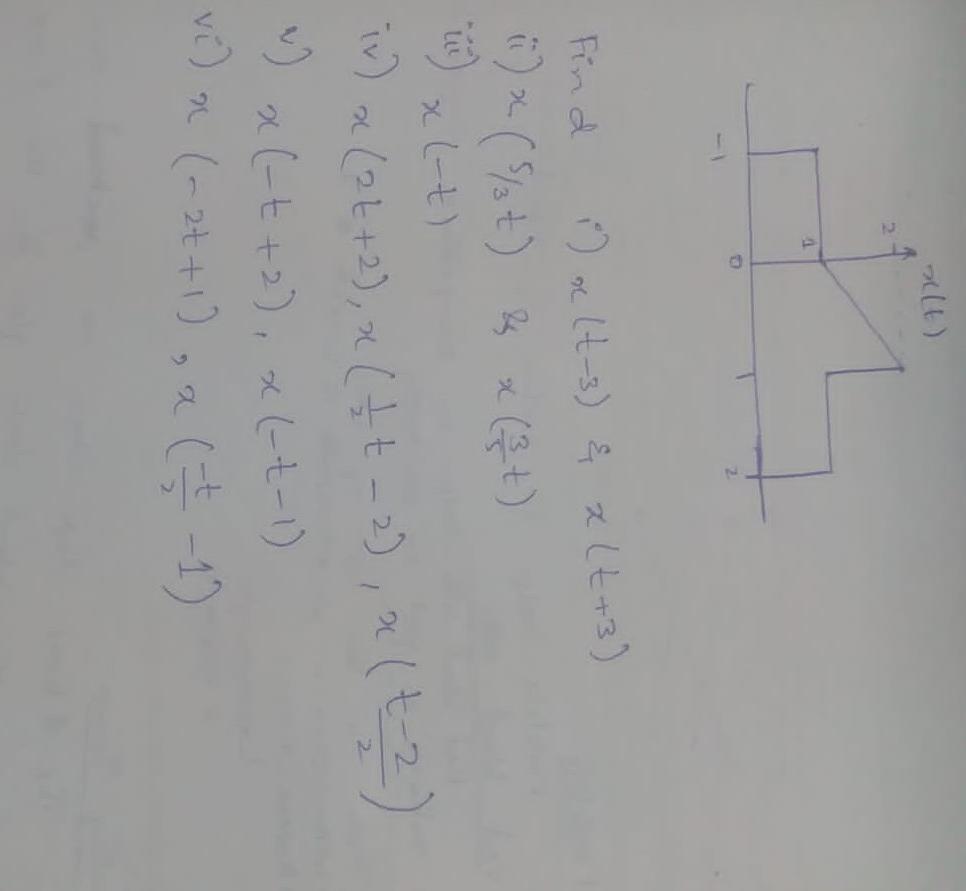 x(t)
2
1
-1 0 1 2
Find i) x(t-3) & x(t+3)
ii) x(5/3 t) & x(3/5 t)
iii) x(-t)
iv) x(2t+2), x(1/2 t - 2), x(t-2/2)
v) x(-t+2), x(-t-1)
vi) x(-2t+1), x(-t/2 -1)